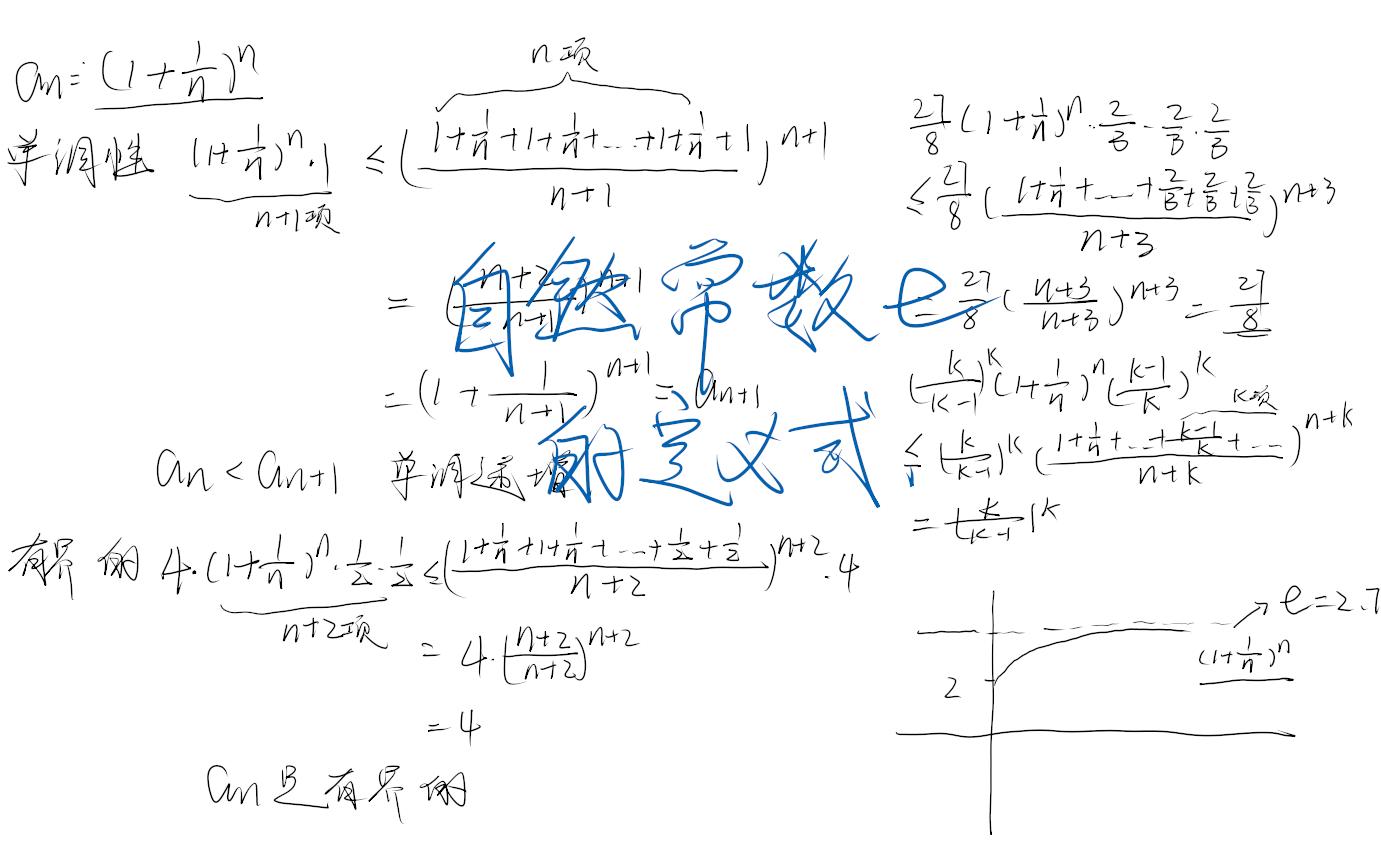 an = (1+1/n)^n
单调性 (1+1/n)^n·1 ≤ ((1+1/n+1+1/n+...+1+1/n+1)/(n+1))^(n+1)
n项
n+1项
= ((n+2)/(n+1))^(n+1)
= (1+1/(n+1))^(n+1) = an+1
an < an+1 单调递增
有界的 4·(1+1/n)^n·1/2·1/2 ≤ ((1+1/n+1+1/n+...+1/2+1/2)/(n+2))^(n+2)·4
n+2项
= 4·((n+2)/(n+2))^(n+2)
= 4
an是有界的
自然常数e
的定义式
27/8(1+1/n)^n·2/3·2/3·2/3
≤ 27/8((1+1/n+...+2/3+2/3+2/3)/(n+3))^(n+3)
= 27/8((n+3)/(n+3))^(n+3) = 27/8
(k/(k-1))^k(1+1/n)^n((k-1)/k)^k
k项
≤ (k/(k-1))^k((1+1/n+...+(k-1)/k+...)/(n+k))^(n+k)
= (k/(k-1))^k
e=2.7
(1+1/n)^n
2